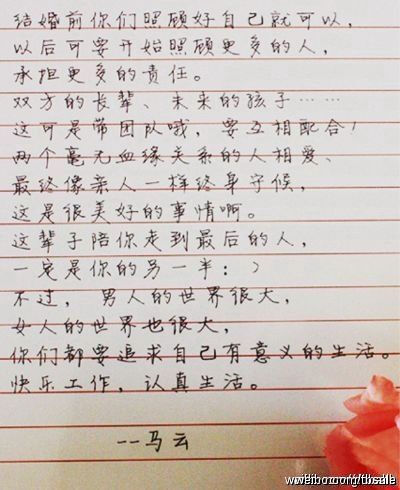 结婚前你们照顾好自己就可以，
以后可要开始照顾更多的人，
承担更多的责任。
双方的长辈、未来的孩子……
这可是带团队哦，要互相配合！
两个毫无血缘关系的人相爱、
最终像亲人一样终身守候，
这是很美好的事情啊。
这辈子陪你走到最后的人，
一定是你的另一半：）
不过，男人的世界很大，
女人的世界也很大，
你们都要追求自己有意义的生活。
快乐工作，认真生活。
--马云